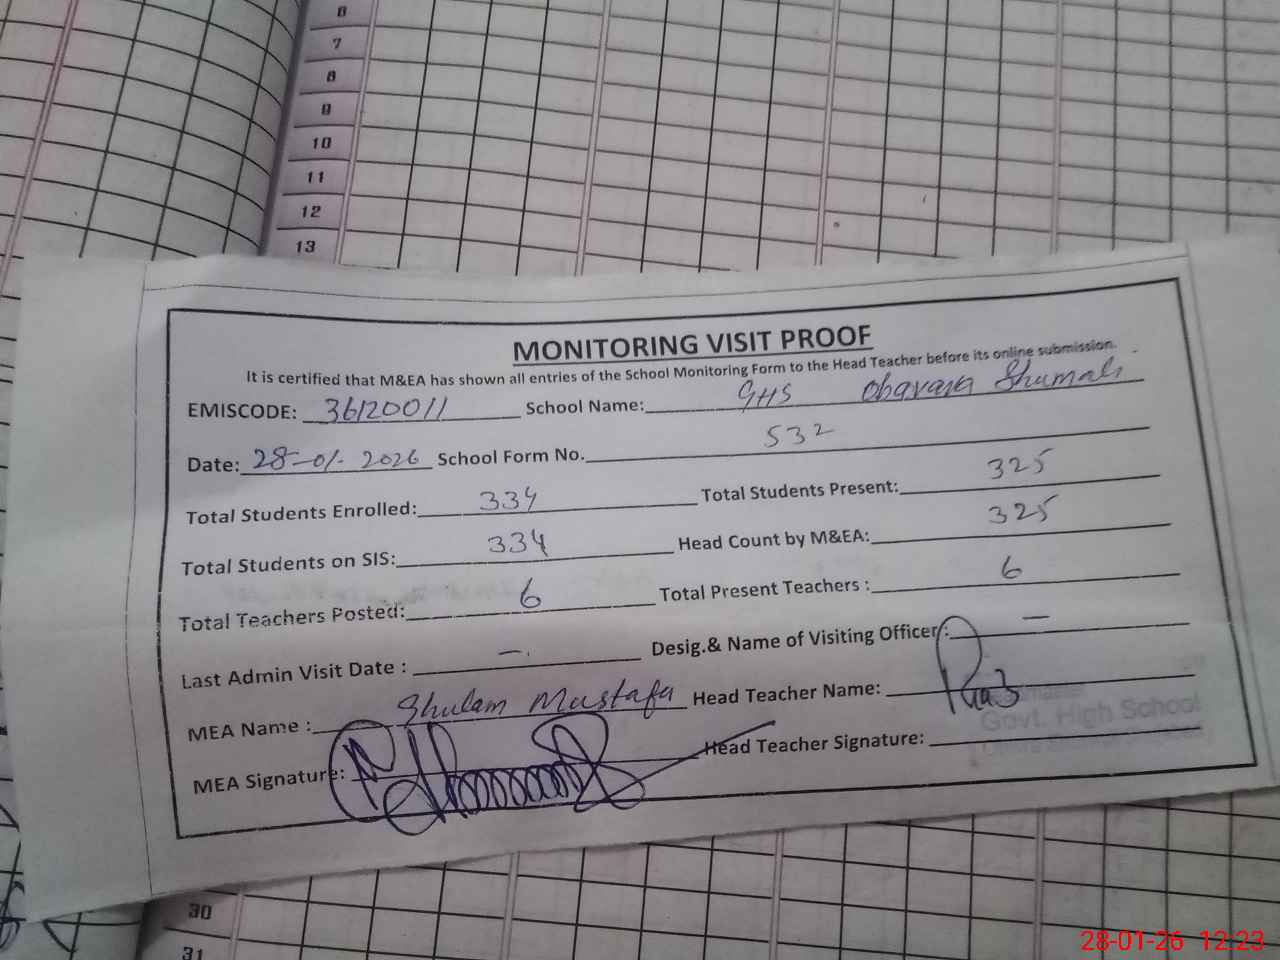 6
7
8
9
10
11
12
13
MONITORING VISIT PROOF
It is certified that M&EA has shown all entries of the School Monitoring Form to the Head Teacher before its online submission.
EMISCODE: 36120011 School Name: GHS Obavara Shumali
Date: 28-01-2026 School Form No. 532
Total Students Enrolled: 334 Total Students Present: 325
Total Students on SIS: 334 Head Count by M&EA: 325
Total Teachers Posted: 6 Total Present Teachers : 6
Last Admin Visit Date : — Desig.& Name of Visiting Officer : —
MEA Name : Ghulam Mustafa Head Teacher Name:
Govt. High School
MEA Signature: Head Teacher Signature:
30
31
28-01-26 12:23